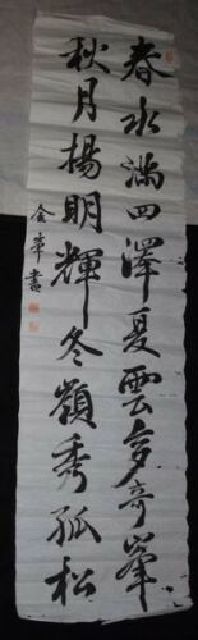 春水満四澤夏雲多奇峯
秋月揚明輝冬嶺秀孤松
金峯書